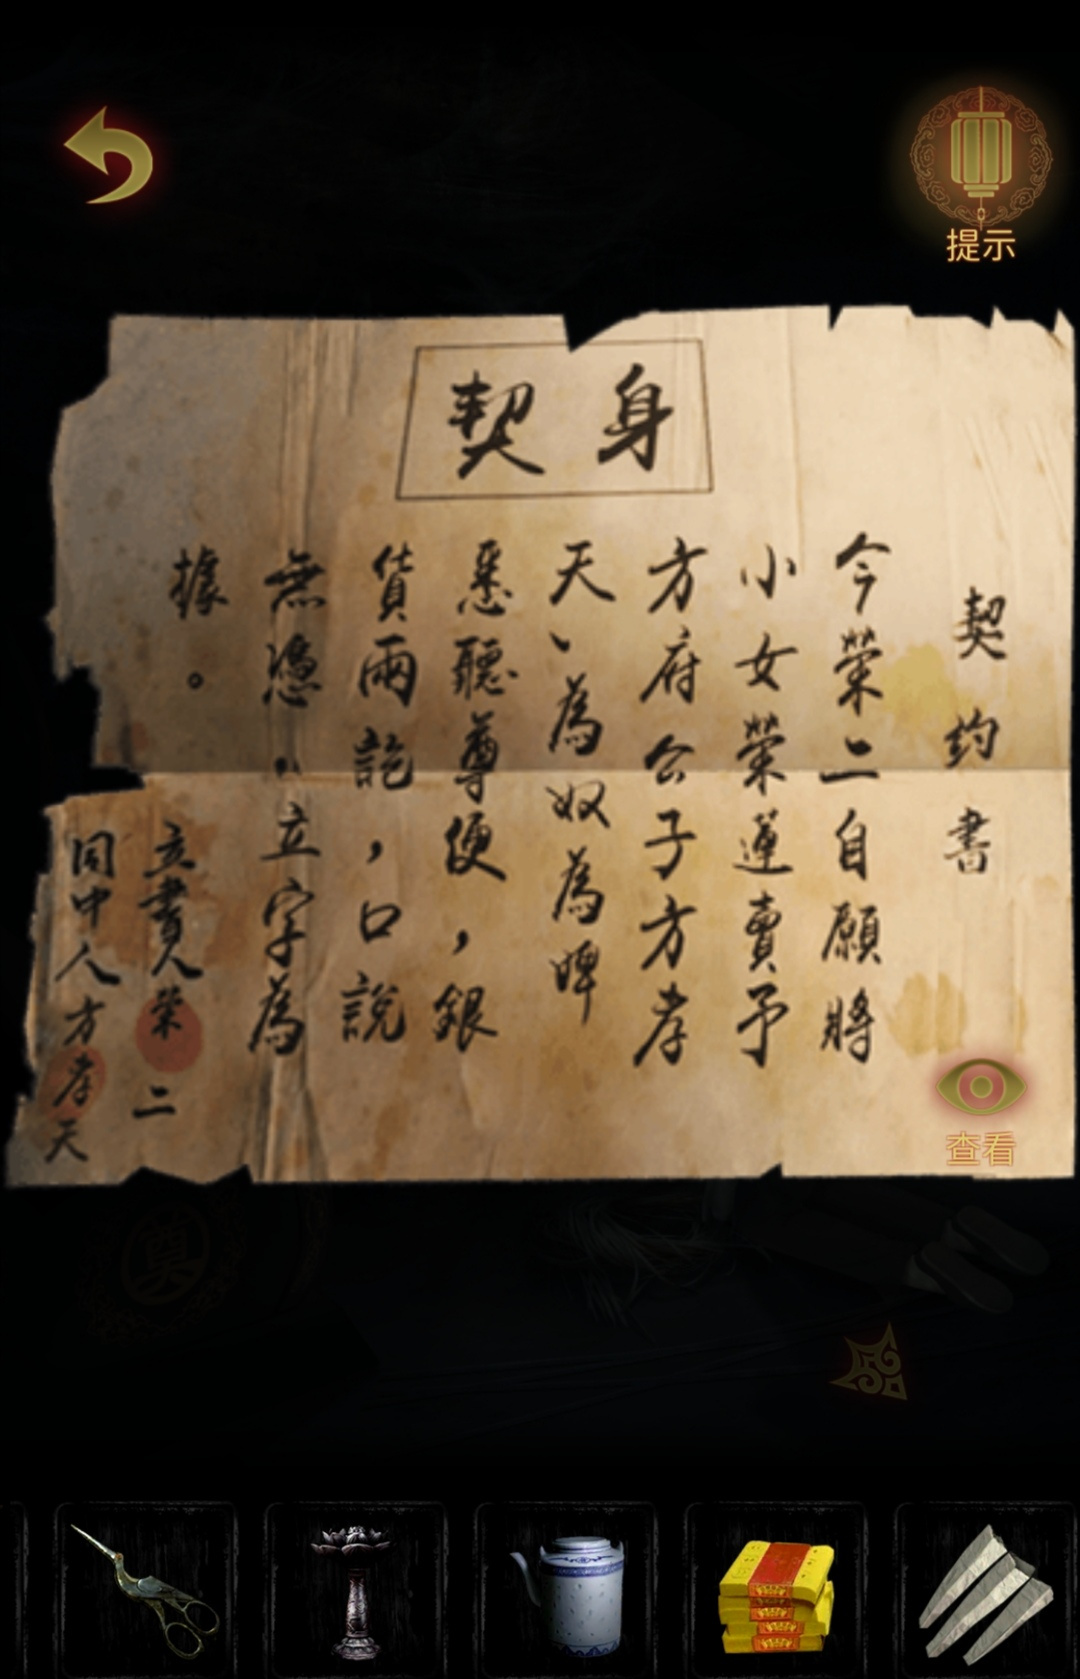 提示
身契
契約書
今榮二自願將
小女榮蓮賣予
方府公子方孝
天、為奴為婢
悉聽尊便，銀
貨兩訖，口說
無憑，立字為
據。
立書人榮二
同中人方孝天
查看
奠